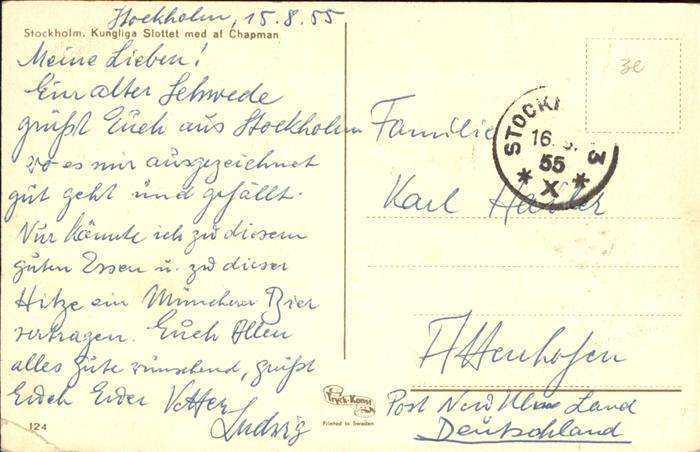 Stockholm, 15.8.55
Stockholm. Kungliga Slottet med af Chapman
Meine Lieben!
Ein alter Schwede
grüßt Euch aus Stockholm
wo es mir ausgezeichnet
gut geht und gefällt.
Nur könnte ich zu diesem
guten Essen u. zu dieser
Hitze ein Münchner Bier
vertragen. Euch Allen
alles Gute wünschend, grüßt
Euch Euer Vetter
Ludwig
124
30
STOCK 3
16. 8.
55
* X *
Familie
Karl
Attenhofen
Post Neu Ulm Land
Deutschland
Tryck-Konst
Printed in Sweden